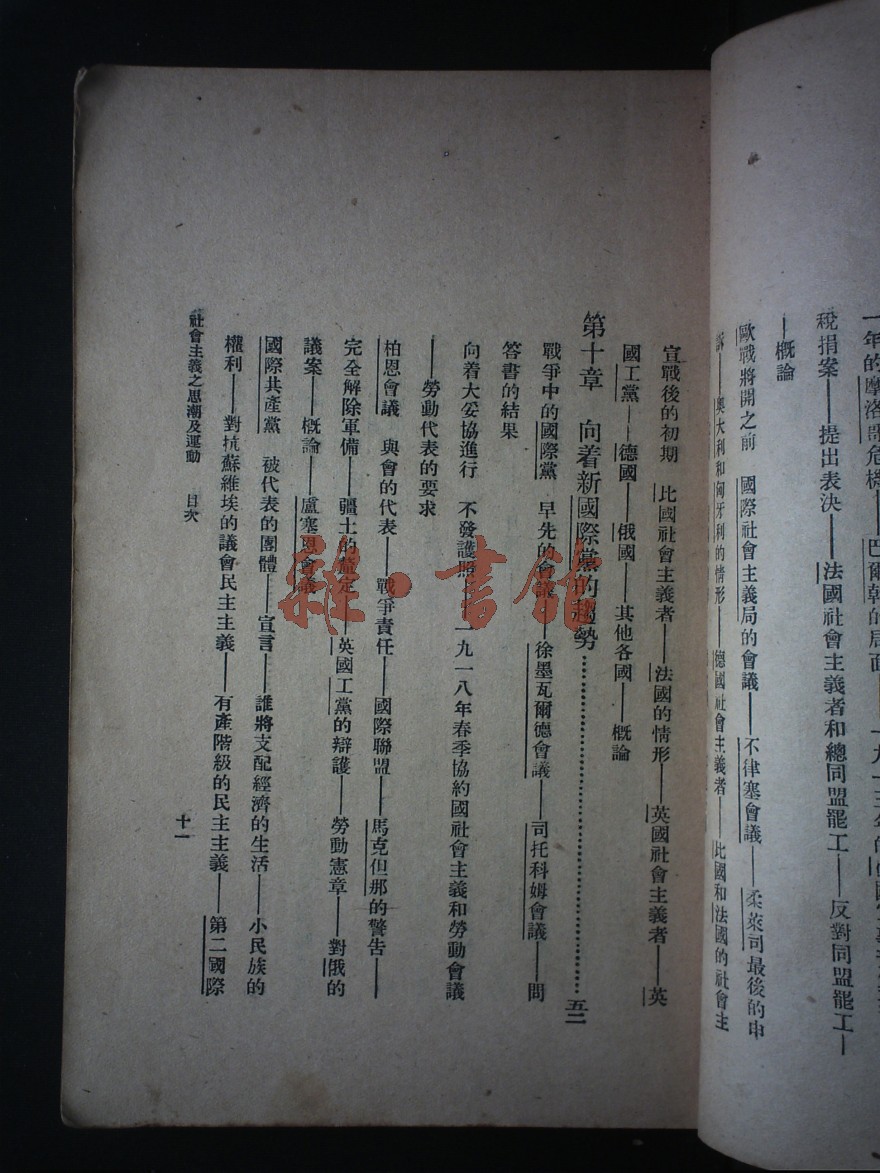 一年的摩洛哥危機——巴爾幹的局面
稅捐案——提出表決——法國社會主義者和總同盟罷工——反對同盟罷工—
—概論
歐戰將開之前　國際社會主義局的會議——不律塞會議——柔萊司最後的申
訴——奧大利和匈牙利的情形——德國社會主義者——比國和法國的社會主
宣戰後的初期　比國社會主義者——法國的情形——英國社會主義者——英
國工黨——德國——俄國——其他各國——概論
第十章　向着新國際黨的趨勢……………………五二
戰爭中的國際黨　早先的會議——徐墨瓦爾德會議——司托科姆會議——問
答書的結果
向着大妥協進行　不發護照——一九一八年春季協約國社會主義和勞動會議
——勞動代表的要求
柏恩會議　與會的代表——戰爭責任——國際聯盟——馬克但那的警告——
完全解除軍備——疆土的釐定——英國工黨的辯護——勞動憲章——對俄的
議案——概論——盧塞恩會議
國際共產黨　被代表的團體——宣言——誰將支配經濟的生活——小民族的
權利——對抗蘇維埃的議會民主主義——有產階級的民主主義——第二國際
社會主義之思潮及運動　目次
十一
雜·書館